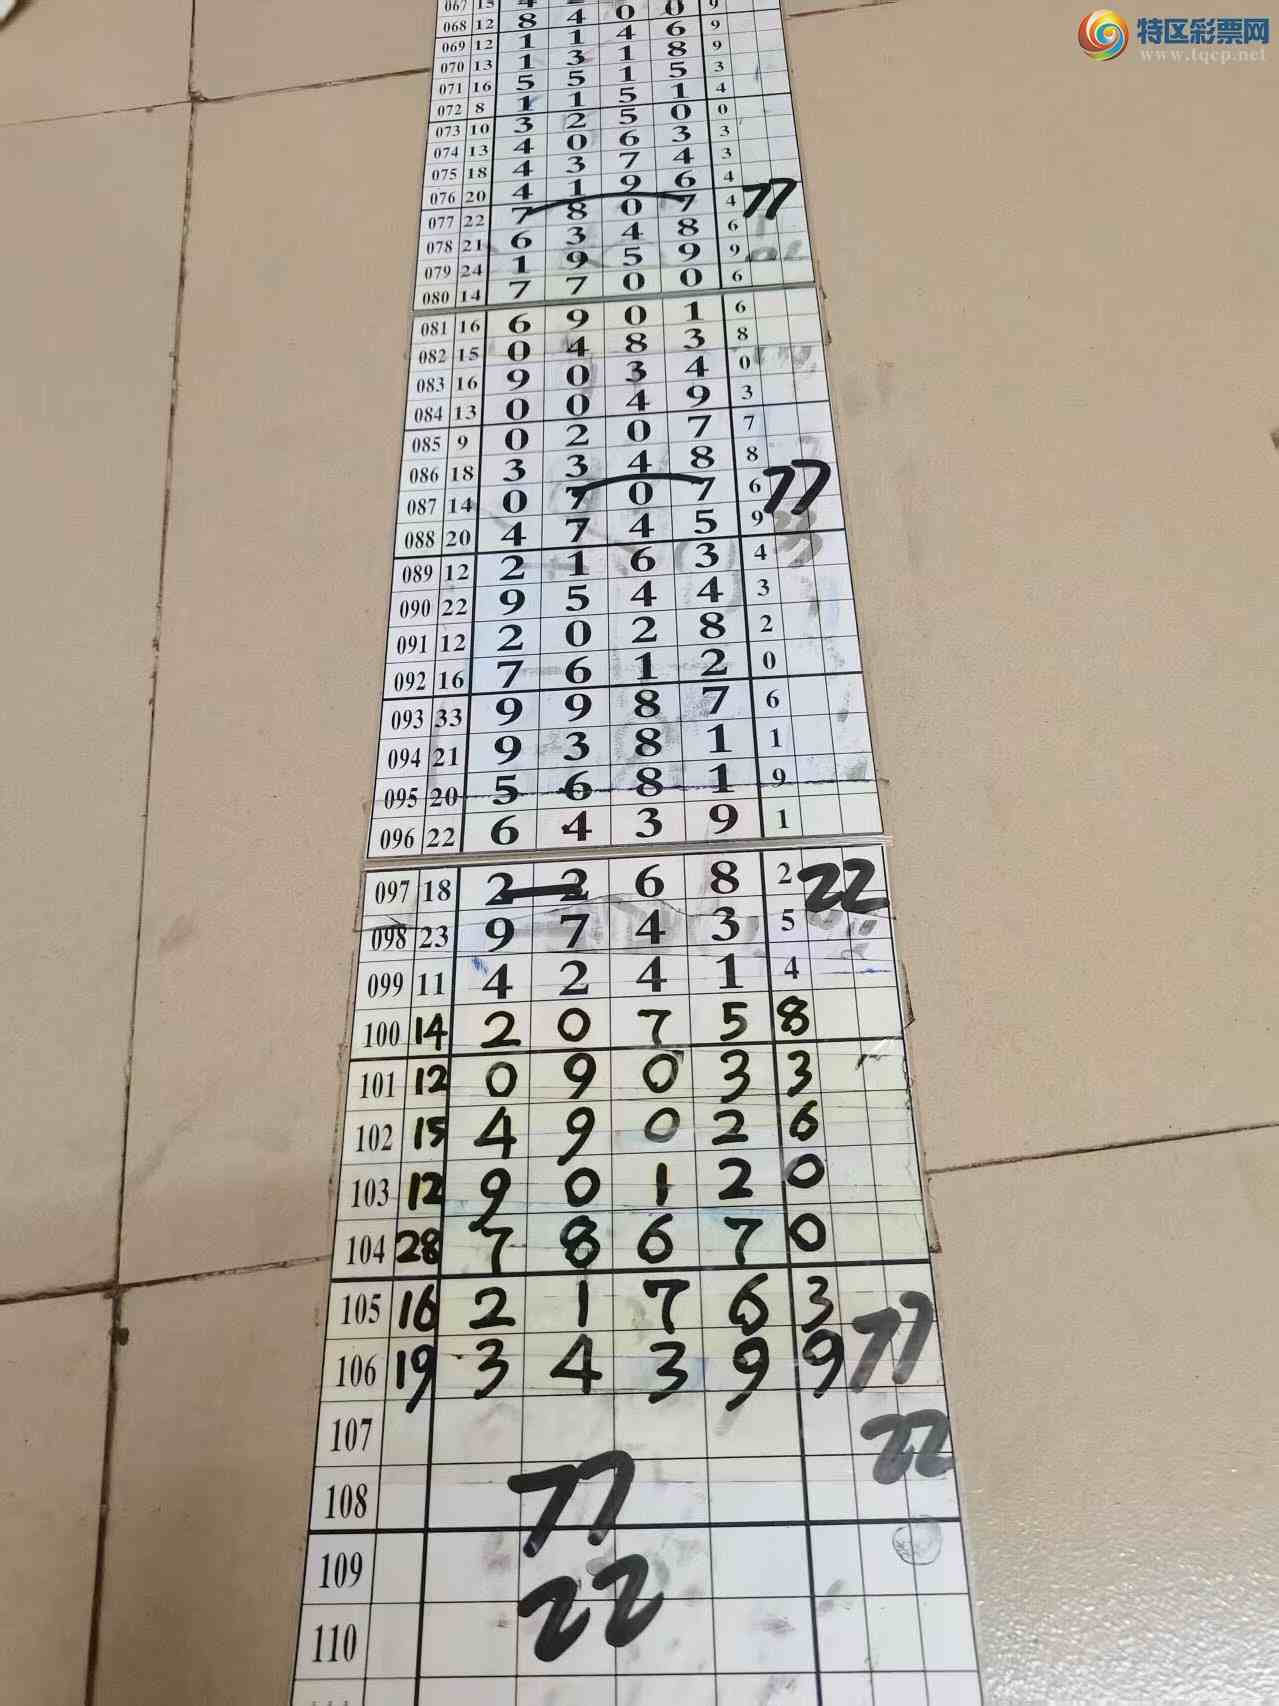 特区彩票网
www.tqcp.net
067 15
068 12 8 4 0 0 9
069 12 1 1 4 6 9
070 13 1 3 1 8 9
071 16 5 5 1 5 3
072 8 1 1 5 1 4
073 10 3 2 5 0 0
074 13 4 0 6 3 3
075 18 4 3 7 4 3
076 20 4 1 9 6 4
077 22 7 8 0 7 4 77
078 21 6 3 4 8 6
079 24 1 9 5 9 9
080 14 7 7 0 0 6
081 16 6 9 0 1 6
082 15 0 4 8 3 8
083 16 9 0 3 4 0
084 13 0 0 4 9 3
085 9 0 2 0 7 7
086 18 3 3 4 8 8
087 14 0 7 0 7 6 77
088 20 4 7 4 5 9
089 12 2 1 6 3 4
090 22 9 5 4 4 3
091 12 2 0 2 8 2
092 16 7 6 1 2 0
093 33 9 9 8 7 6
094 21 9 3 8 1 1
095 20 5 6 8 1 9
096 22 6 4 3 9 1
097 18 2 2 6 8 2 22
098 23 9 7 4 3 5
099 11 4 2 4 1 4
100 14 2 0 7 5 8
101 12 0 9 0 3 3
102 15 4 9 0 2 6
103 12 9 0 1 2 0
104 28 7 8 6 7 0
105 16 2 1 7 6 3
106 19 3 4 3 9 9 77
107 22
108 77
109
110 22